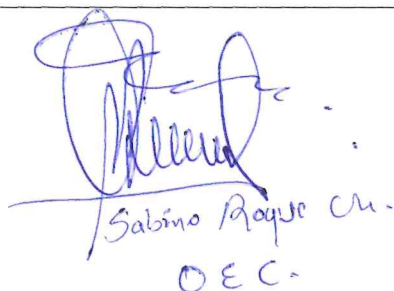 Sabino Roque Ch.
O E C.